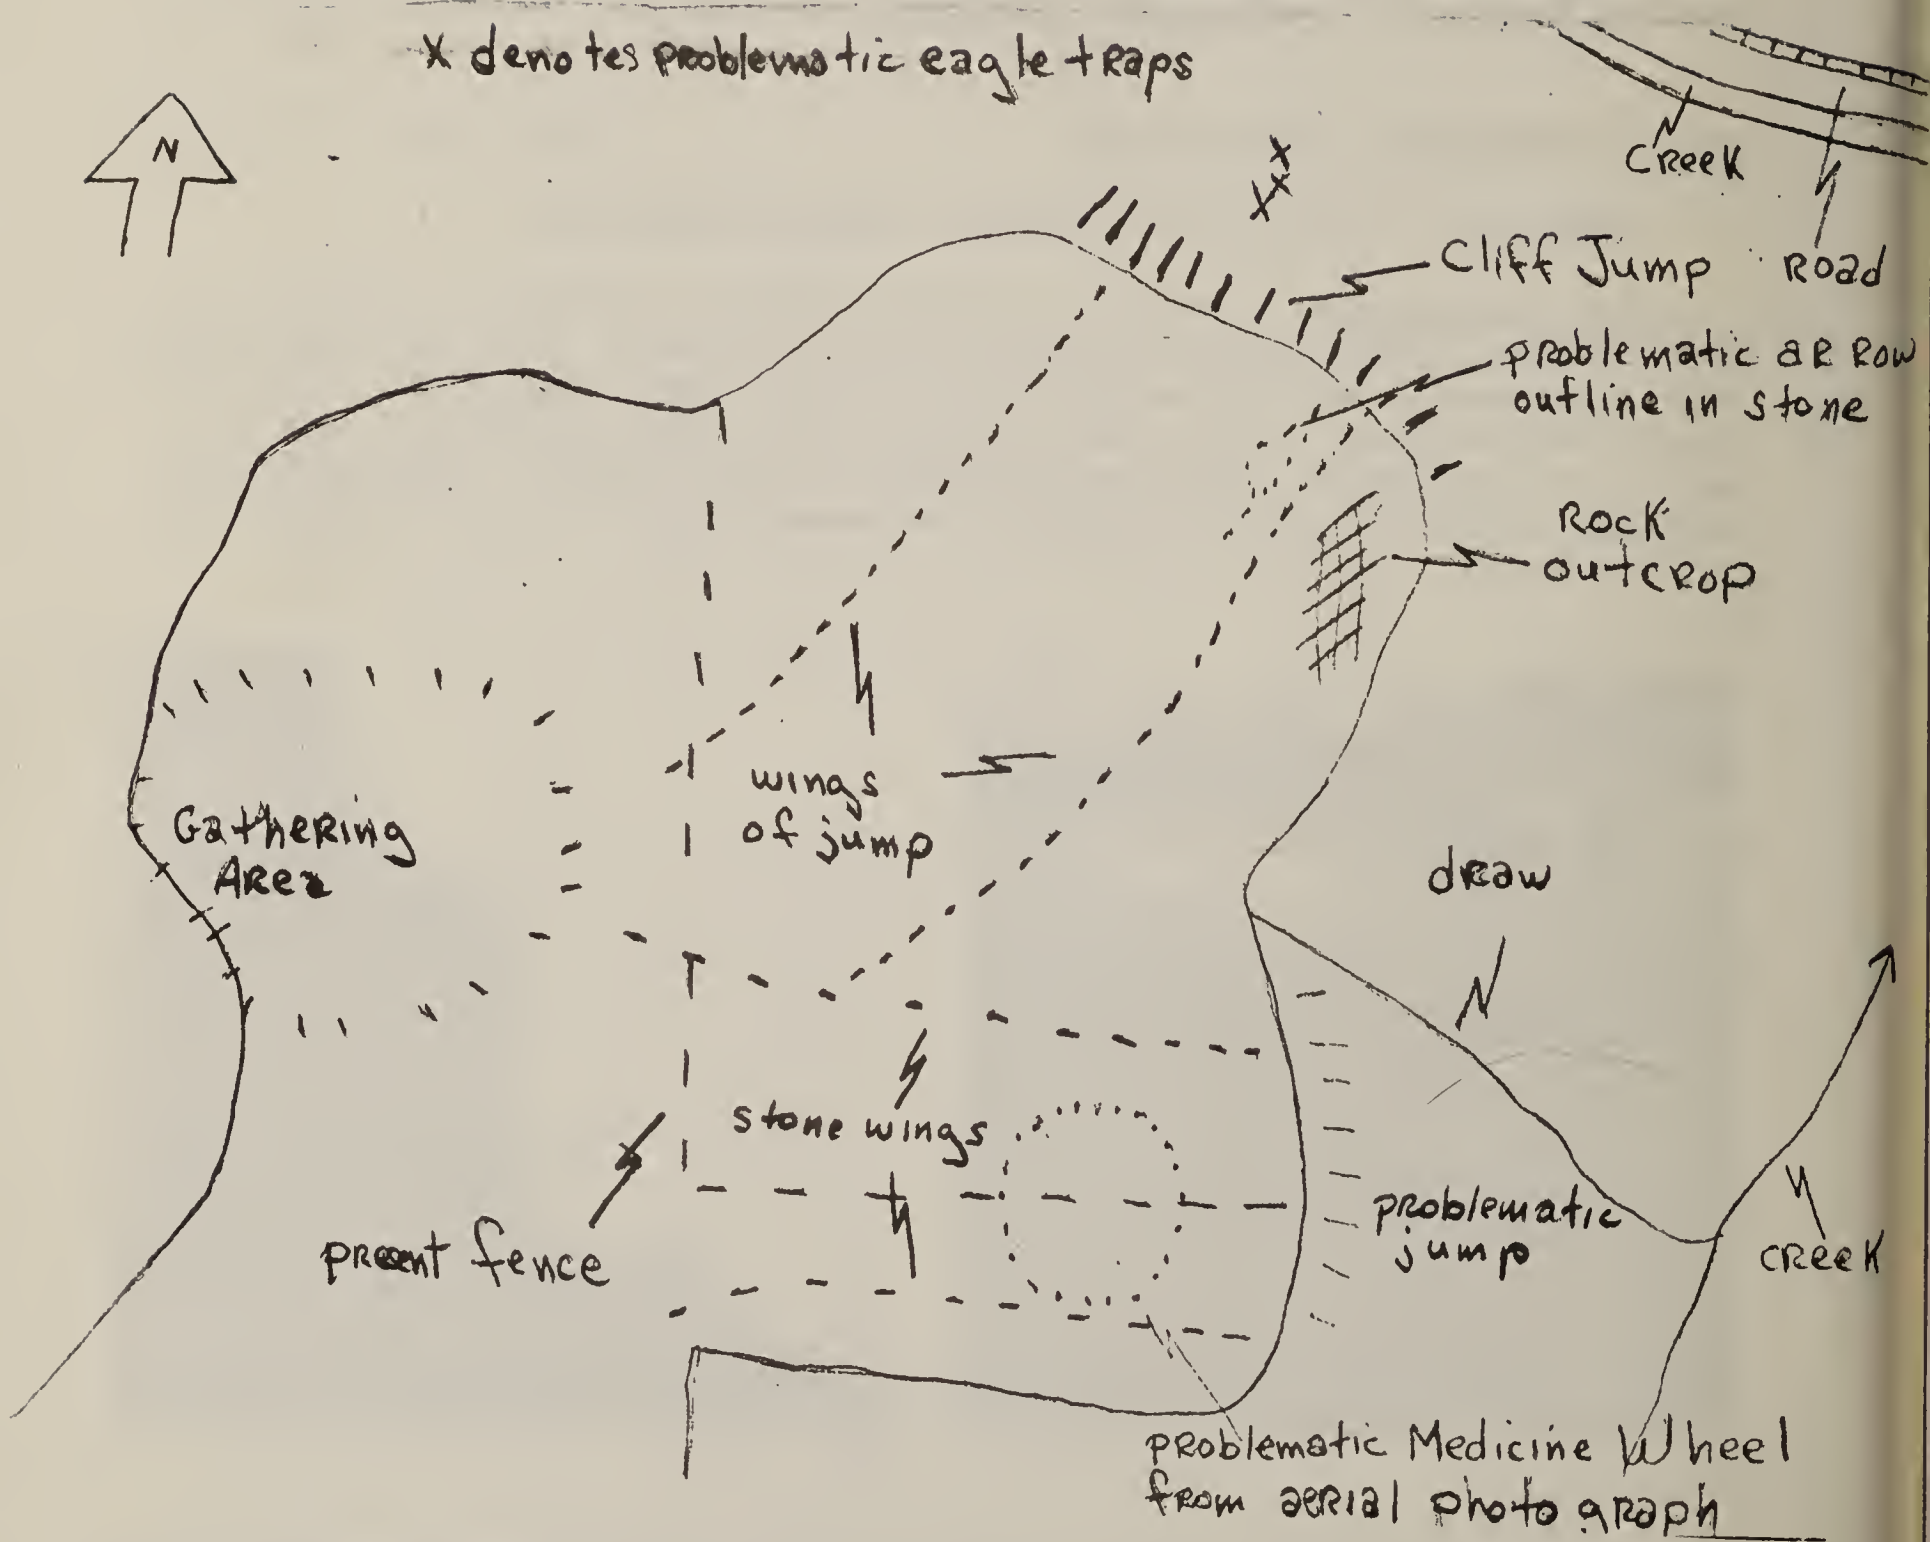 X denotes problematic eagle traps
N
X
X
X
Creek
Cliff Jump
Road
problematic arrow
outline in stone
Rock
outcrop
wings
of jump
Gathering
Area
draw
stone wings
present fence
problematic
jump
Creek
problematic Medicine Wheel
from aerial photograph